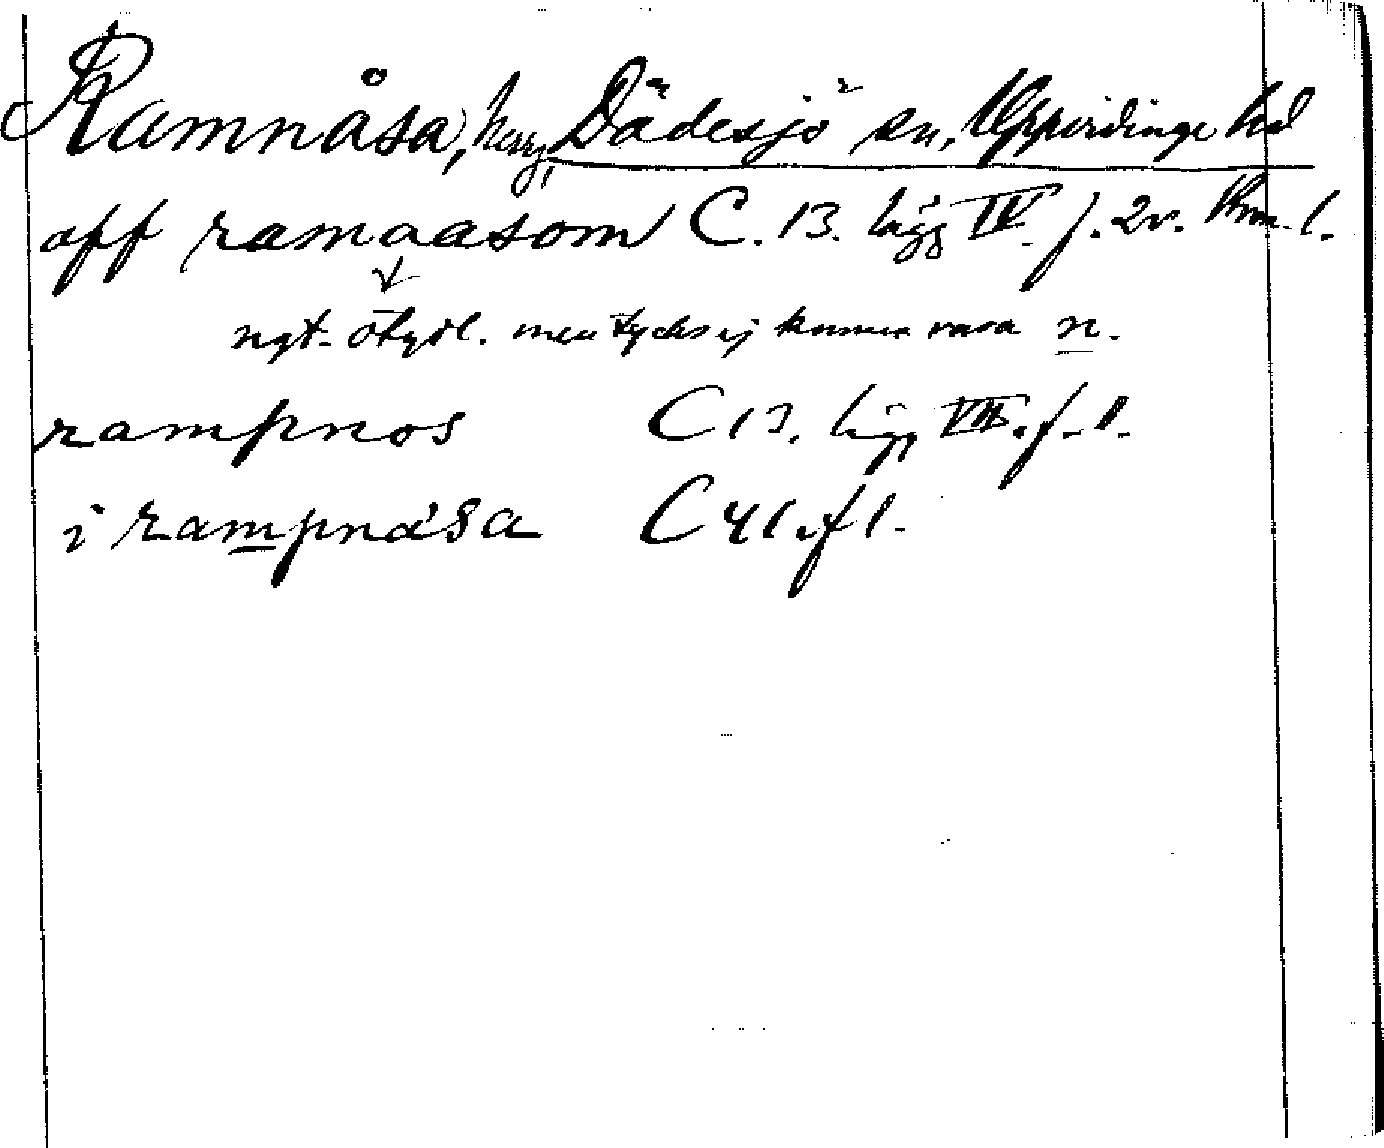 Ramnåsa, herrg, Dädesjö sn, Uppvidinge hd
off ramaasom C. 13. lägg IV f. 2v. Kron. l.
ngt. otydl. men tycks ej kunna vara n.
rampnos C 13. lägg VII. f. 1.
i rampnåsa C 41. f 1.